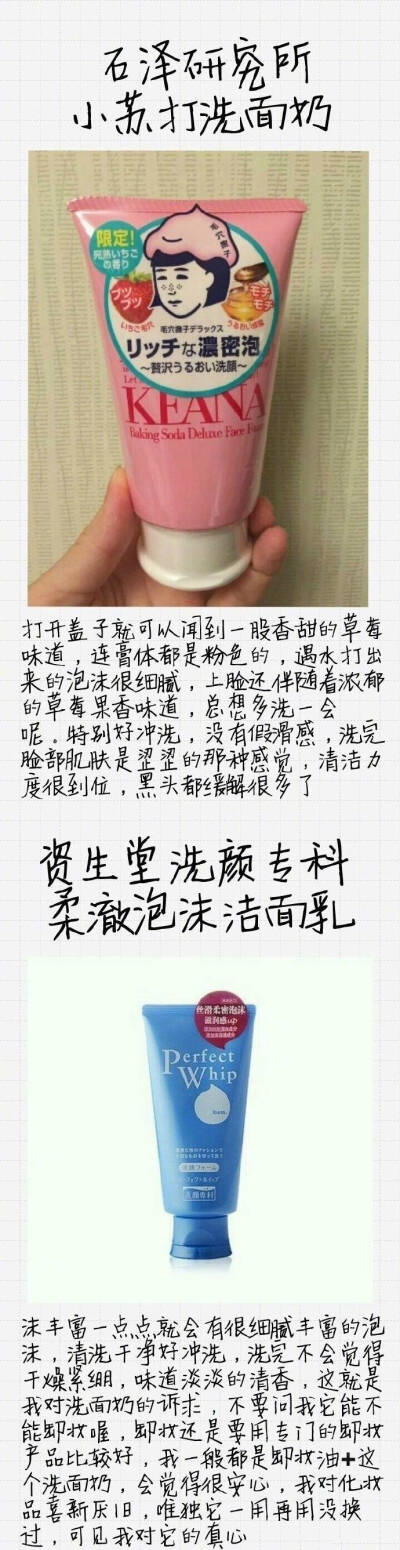 石泽研究所
小苏打洗面奶
毛穴撫子
限定!
完熟いちご
の香り
プツ
プツ
モチ
モチ
いちご毛穴
うるおい蜂蜜
毛穴撫子デラックス
リッチな濃密泡
~贅沢うるおい洗顔~
KEANA
Baking Soda Deluxe Face Foam
打开盖子就可以闻到一股香甜的草莓
味道，连膏体都是粉色的，遇水打出
来的泡沫很细腻，上脸还伴随着浓郁
的草莓果香味道，总想多洗一会
呢。特别好冲洗，没有假滑感，洗完
脸部肌肤是涩涩的那种感觉，清洁力
度很到位，黑头都缓解很多了
资生堂洗颜专科
柔澈泡沫洁面乳
丝滑柔密泡沫
滋润感up
Perfect
Whip
洗顔フォーム
パーフェクトホイップ
洗顔専科
沫丰富一点点就会有很细腻丰富的泡
沫，清洗干净好冲洗，洗完不会觉得
干燥紧绷，味道淡淡的清香，这就是
我对洗面奶的诉求，不要问我它能不
能卸妆喔，卸妆还是要用专门的卸妆
产品比较好，我一般都是卸妆油+这
个洗面奶，会觉得很安心，我对化妆
品喜新厌旧，唯独它一用再用没换
过，可见我对它的真心